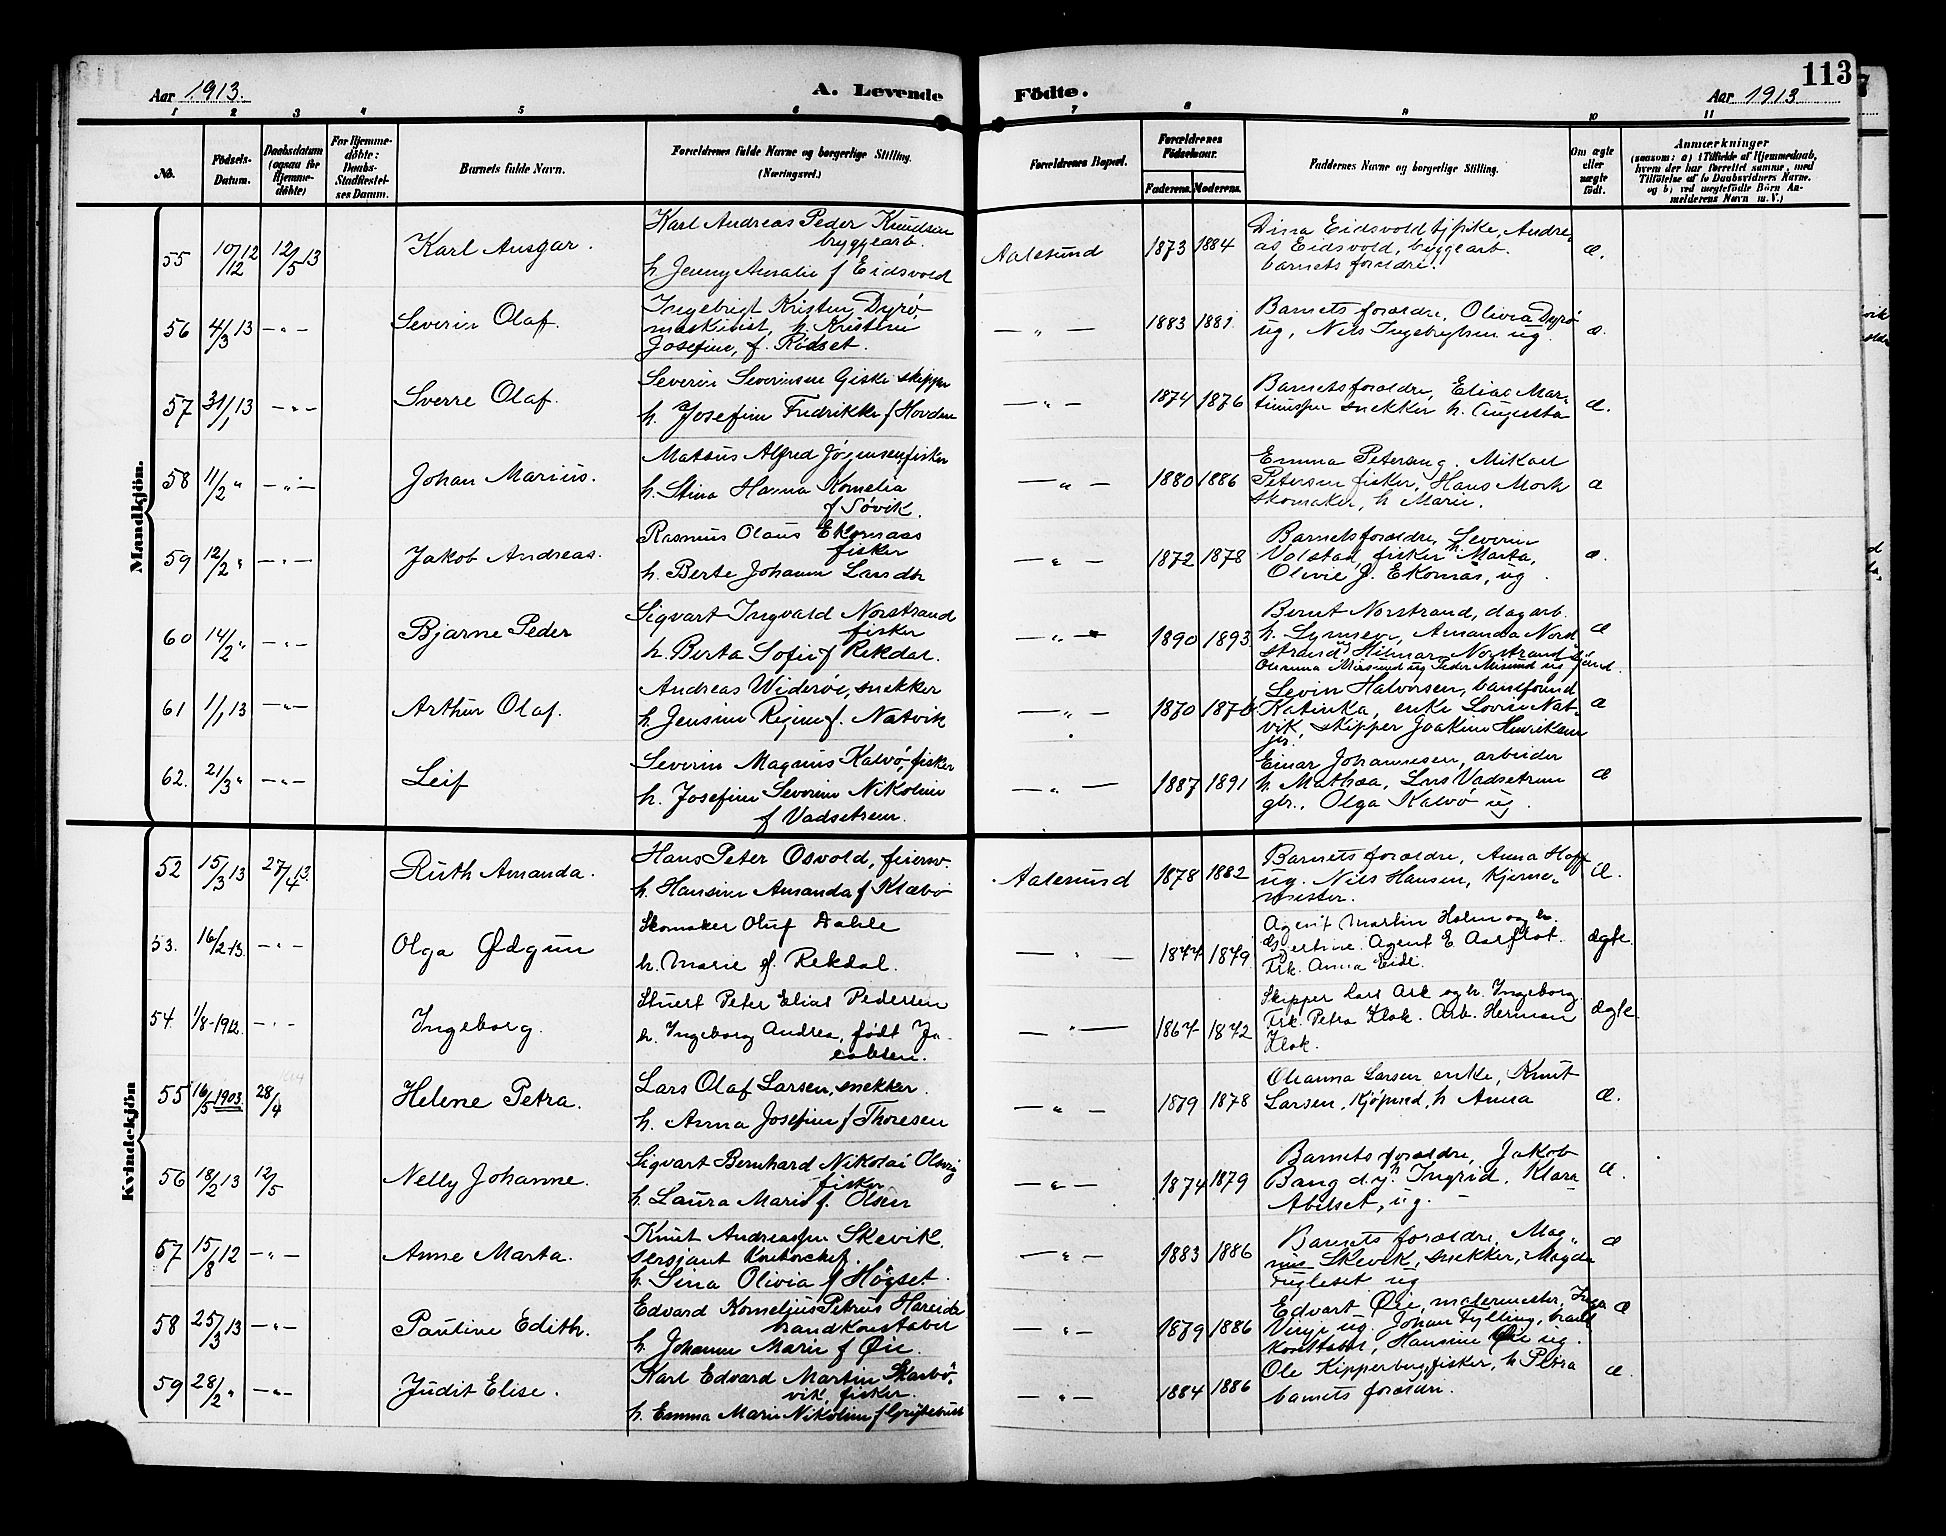 113
Aar 1913.
A. Levende Födte.
Aar 1913
1 2 3 4 5 6 7 8 9 10 11
No.
Födsels-Datum.
Daabsdatum (ogsaa for Hjemme-döbte)
For Hjemme-döbte: Daabs-Stadfæstel-ses Datum.
Barnets fulde Navn.
Forældrenes fulde Navne og borgerlige Stilling. (Næringsvei.)
Forældrenes Bopæl.
Forældrenes Födselsaar.
Faderens. Moderens.
Faddernes Navne og borgerlige Stilling.
Om ægte eller uægte födt.
Anmærkninger
(saasom: a) i Tilfælde af Hjemmedaab, hvem der har forrettet samme, med Tilföielse af to Daabsvidners Navne, og b) ved uægtefödte Börn An-melderens Navn m. V.)
Mandkjön.
55 10/12 12 12/5 13 Karl Ansgar.
Karl Andreas Peder Knudsen
byggearb.
h. Jenny Amalie f Eidsvold
Aalesund 1873 1884
Dina Eidsvold tjpike, Andre-
as Eidsvold, byggearb.
barnets forældre.
æ.
56 4/3 13 -"- Severin Olaf.
Ingebrigt Kristen Dyrø
maskinist, h. Kristine
Josefine, f. Rødset.
-"- 1883 1881
Barnets forældre, Olivia Dyrø
ug, Nils Ingebrigtsen ug.
æ.
57 31/1 13 -"- Sverre Olaf.
Severin Severinsen Giske skipper
h. Josefine Fredrikke f Hovden
-"- 1874 1876
Barnets forældre, Elias Mar-
tinussen snekker h. Augusta
æ.
58 11/2 " -"- Johan Marius.
Mateus Alfred Jørgensen fisker
h. Stina Hanna Kornelia
f Søvik.
-"- 1880 1886
Emma Petersen ug. Mikael
Petersen fisker, Hans Mork
skomaker, h Marie.
æ
59 12/2 " -"- Jakob Andreas.
Rasmus Olaus Ekornaas
fisker
h. Berte Johanne
-"- 1872 1878
Barnets forældre, Severin
Valstad fisker h Marta,
Olivie J. Ekornås, ug.
æ.
60 14/2 " -"- Bjarne Peder
Sigvart Ingvald Norstrand
fisker
h. Berta Sofie f Rekdal.
-"- 1890 1893
Bernt Norstrand, dagarb
h. , Amanda Nord-
strand ug Hilmar Norstrand
Misund ug Peder Misund ug
æ
61 1/1 13 -"- Arthur Olaf.
Andreas Widerøe, snekker
h. Jensine Regine f. Natvik
-"- 1870 1876
Levin Halvorsen,
Katinka, enke Lovise Nat-
vik, skipper Joakim Henriksen
jr.
æ
62. 21/3 " -"- Leif
Severin Magnus Kalvø, fisker
h. Josefine Severine Nikoline
f Vadsetrem.
-"- 1887 1891
Einar Johannesen, arbeider
h. Mathea, Lars Vadsetrem
gbr., Olga Kalvø ug.
æ
Kvindekjön
52 15/3 13 27/4 13 Ruth Amanda.
Hans Peter Osvold,
h. Hansine Amanda f Klæbø
Aalesund 1878 1882
Barnets forældre, Anna Hoff
ug. Nils Hansen,
mester.
Æ.
53. 16/2 13. -"- Olga Ødgun
Skomaker Oluf Dahle
h. Marie f. Rekdal.
-"- 1877 1879
Agent Martin Holm og h.
Gjertine. Agent E Aarflot.
Frk. Anna Eide.
ægte.
54. 1/8-1912. -"- Ingeborg.
Stuert Peter Elias Pedersen
h. Ingeborg Andrea, født Ja-
cobsen.
-"- 1867 1872
Skipper Lars Ask og h. Ingeborg.
Frk. Petra Klok. Arb. Herman
Klok.
ægte.
55 16/5 1903. 28/4 Helene Petra.
Lars Olaf Larsen, snekker.
h. Anna Josefine f Thoresen
-"- 1879 1878
Oleanna Larsen enke, Knut
Larsen, kjøpmd, h Anna
æ.
56 18/2 13 12/5 Nelly Johanne.
Sigvart Bernhard Nikolai
fisker
h. Laura Marie f. Olsen
-"- 1874 1879
Barnets forældre, Jakob
Bang d.y. h Ingrid, Klara
Abelset, ug.
æ.
57 15/8 12 -"- Anne Marta.
Knut Andreassen Skevik.
sersjant
h. Sina Olivia f Høgset.
-"- 1883 1886
Barnets forældre, Mag-
nus Skevik, snekker, Magda
Fugleset ug
æ
58 25/3 13 -"- Pauline Edith.
Edvard Kornelius Petrus Hareide
brandkonstabel
h. Johanne Marie f Øie.
-"- 1879 1886
Edvart Øie, malermester, Inga
ug Johan Fylling, brand
konstabel, Hansine Øie ug.
æ
59 28/2 " -"- Judit Elise.
Karl Edvard Martin Skarbø-
vik, fisker.
h. Emma Marie Nikoline f Grytebust
-"- 1884 1886
Ole Kipperberg, fisker, h Petra
barnets forældre.
æ.